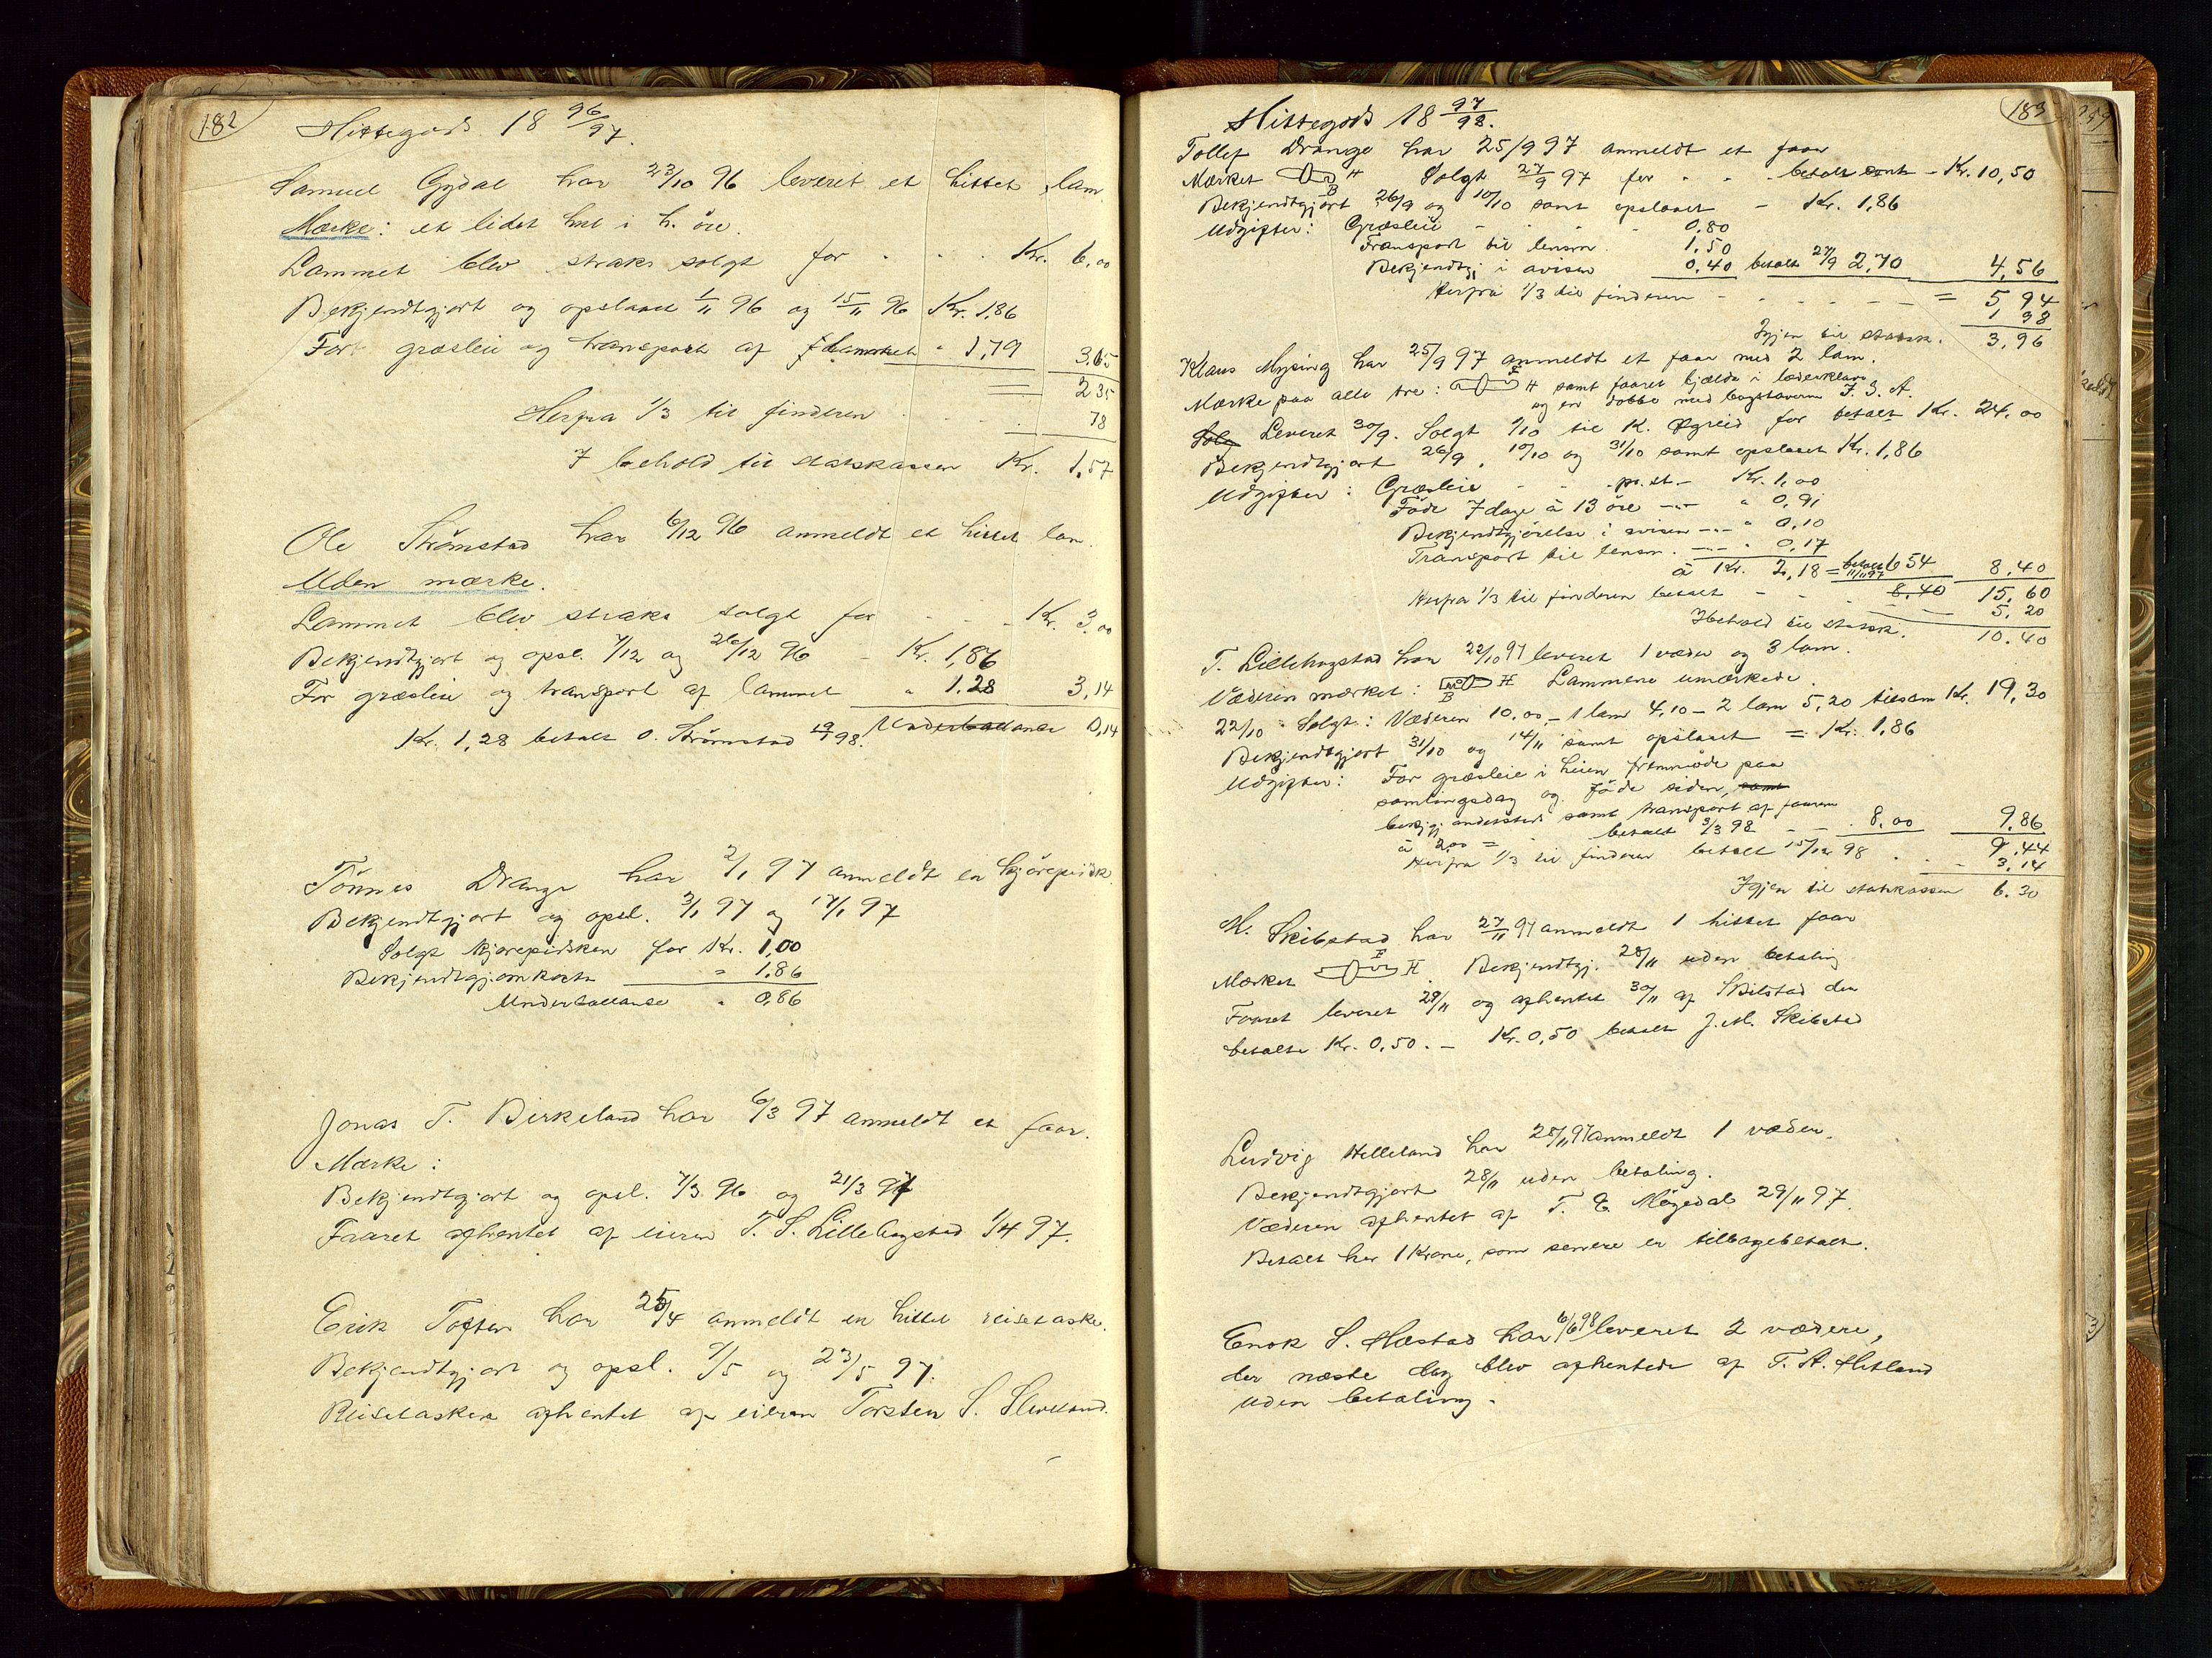 182
Hittegods 18 96/97.
Samuel Gydal har 23/10 96 leveret et hittet lam.
Mærke: et lidet hul i h. öre.
Lammet blev straks solgt for . . . Kr. 6,00
Bekjendtgjort og opslaaet 1/11 96 og 15/11 96 Kr. 1.86
For græsleie og transport af Lammet " 1,79 3.65
2 35
Herfra 1/3 til finderen . . . 78
I behold til statskassen Kr. 1,57
Ole Strömstad har 6/12 96 anmeldt et hittet lam.
Uden mærke.
Lammet blev straks solgt for - - - Kr. 3,00
Bekjendtgjort og opsl. 7/12 og 26/12 96 - Kr. 1,86
For græsleie og transport af lammet " 1.28 3,14
Kr. 1,28 betalt O. Strömstad 98. Underballance 0,14
Tönnes Drange har 2/1 97 anmeldt en kjörepidsk.
Bekjendtgjort og opsl. 3/1 97 og 17/1 97
Solgt kjörepidsken for Kr. 1,00
Bekjendtgj.omkostn " 1.86
Underballance " 0,86
Jonas T. Birkeland har 6/3 97 anmeldt et faar.
Mærke:
Bekjendtgjort og opsl. 7/3 96 og 21/3 97
Faaret afhentet af eieren T. S. Lillebogstad 1/4 97.
Erik Toften har 25/4 anmeldt en hittet reisetaske.
Bekjendtgjort og opsl. 9/5 og 23/5 97.
Reisetasken afhentet af eieren Torsten S.
183
Hittegods 18 97/98.
Tollef Drange har 25/9 97 anmeldt et faar
Mærket H B Solgt 27/9 97 for - - - betalt - Kr. 10,50
Bekjendtgjort 26/9 og 10/10 samt opslaaet - Kr. 1,86
Udgifter: Græsleie - - - 0.80
Transport til lensm. 1.50
Bekjendtgj. i avisen 0.40 betalt 27/9 2,70 4,56
Herfra 1/3 til finderen - - - - = 5 94
1 98
Igjen til statsk. 3,96
Klaus Mysing har 25/9 97 anmeldt et faar med 2 lam.
Mærke paa alle tre: H samt faaret bjælde i læderklave
og en dobbe med bogstaverne T. S. A.
Solg Leveret 30/9. Solgt 1/10 til K. Øgreid for betalt Kr. 24.00
Bekjendtgjort 26/9, 10/10 og 31/10 samt opslaaet Kr. 1,86
Udgifter: Græsleie - - pr. st. - Kr. 1,00
Föde 7 dage à 13 öre --- " 0,91
Bekjendtgjörelse i avisen --- " 0.10
Transport til lensm. --- " 0,17
à Kr. 2,18 = betalt 11/11 97 6 54 8.40
Herfra 1/3 til finderen betalt - - - 8,40 15,60
5,20
Ibehold til statsk. 10.40
T. Lillebogstad har 22/10 97 leveret 1 væder og 3 lam.
Væderen mærket: H B Lammene umærkede.
22/10 Solgt: Væderen 10.00 - 1 lam 4.10 - 2 lam 5,20 tilsam Kr. 19,30
Bekjendtgjort 31/10 og 14/11 samt opslaaet = Kr. 1,86
Udgifter: For græsleie i heien, fremmöde paa
samlingsdag og föde siden, samt
bekjgj. andetsteds samt transport af faarene
à 2.00 = betalt 3/3 98 - - 8.00 9,86
Herfra 1/3 til finderen betalt 15/12 98 . . 9.44
3.14
Igjen til statskassen 6.30
M. Skibstad har 27/11 97 anmeldt 1 hittet faar
Mærket H. Bekjendtgj. 28/11 uden betaling
Faaret leveret 29/11 og afhentet 30/11 af Skibstad der
betalte Kr. 0,50. - Kr. 0,50 betalt J. M. Skibstad
Ludvig Helleland har 25/11 97 anmeldt 1 væder.
Bekjendtgjort 28/11 uden betaling.
Væderen afhentet af T. E Mögedal 29/11 97.
Betalt her 1 Krone, som senere er tilbagebetalt.
Enok S. Hæstad har 6/6 98 leveret 2 vædere,
der næste dag blev afhentede af T. A. Hetland
uden betaling.